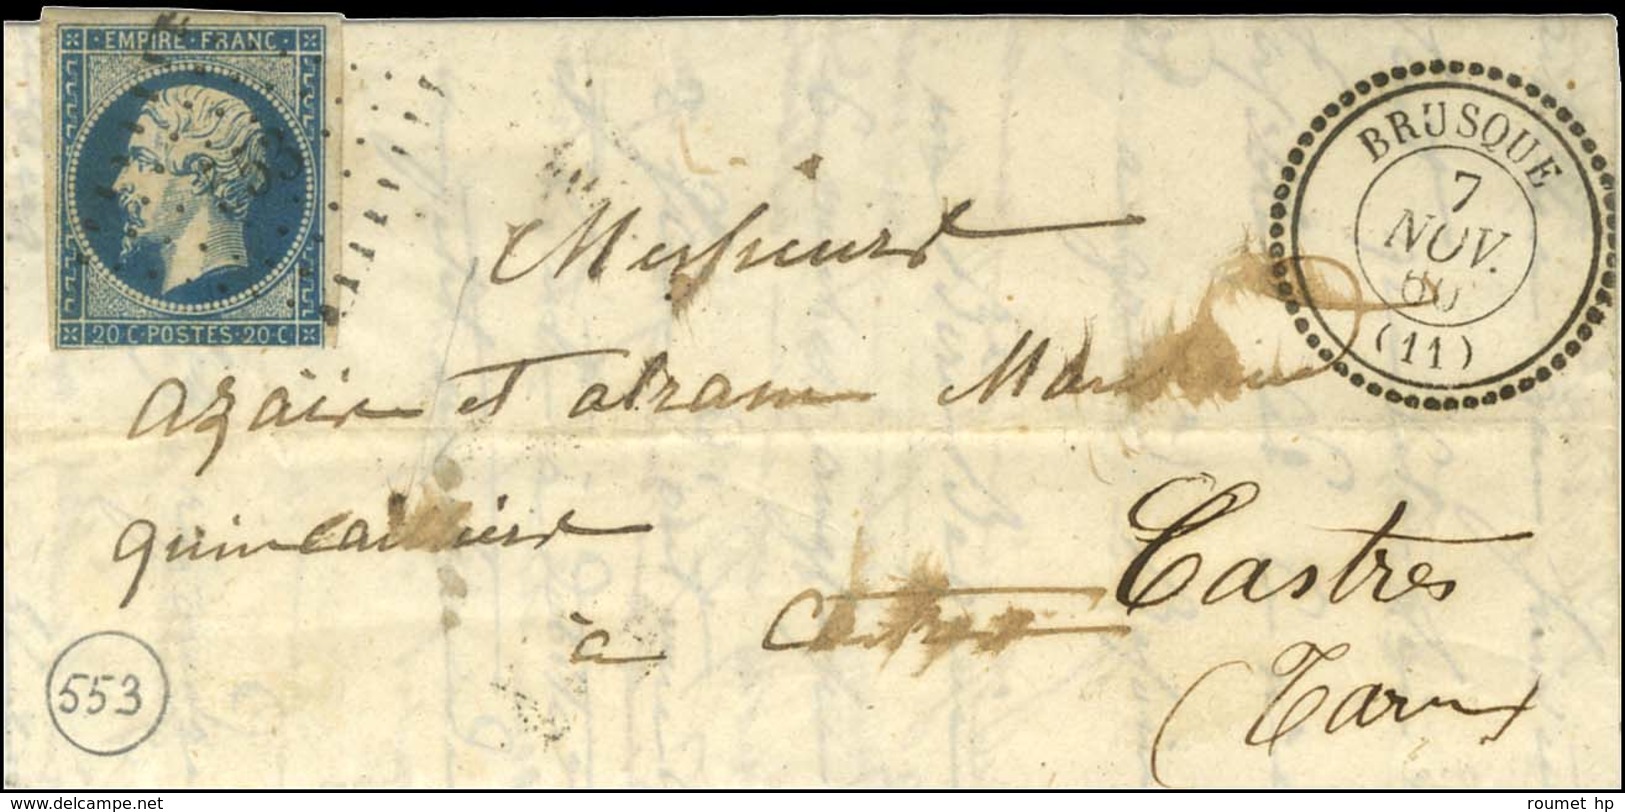 EMPIRE · FRANC ·
53
20 C · POSTES · 20 C
BRUSQUE
7
NOV.
60
(11)
Messieurs
Azaïs et abram
quincailliers
à Castres Castres
(Tarn)
553
www.delcampe.net
roumet hp